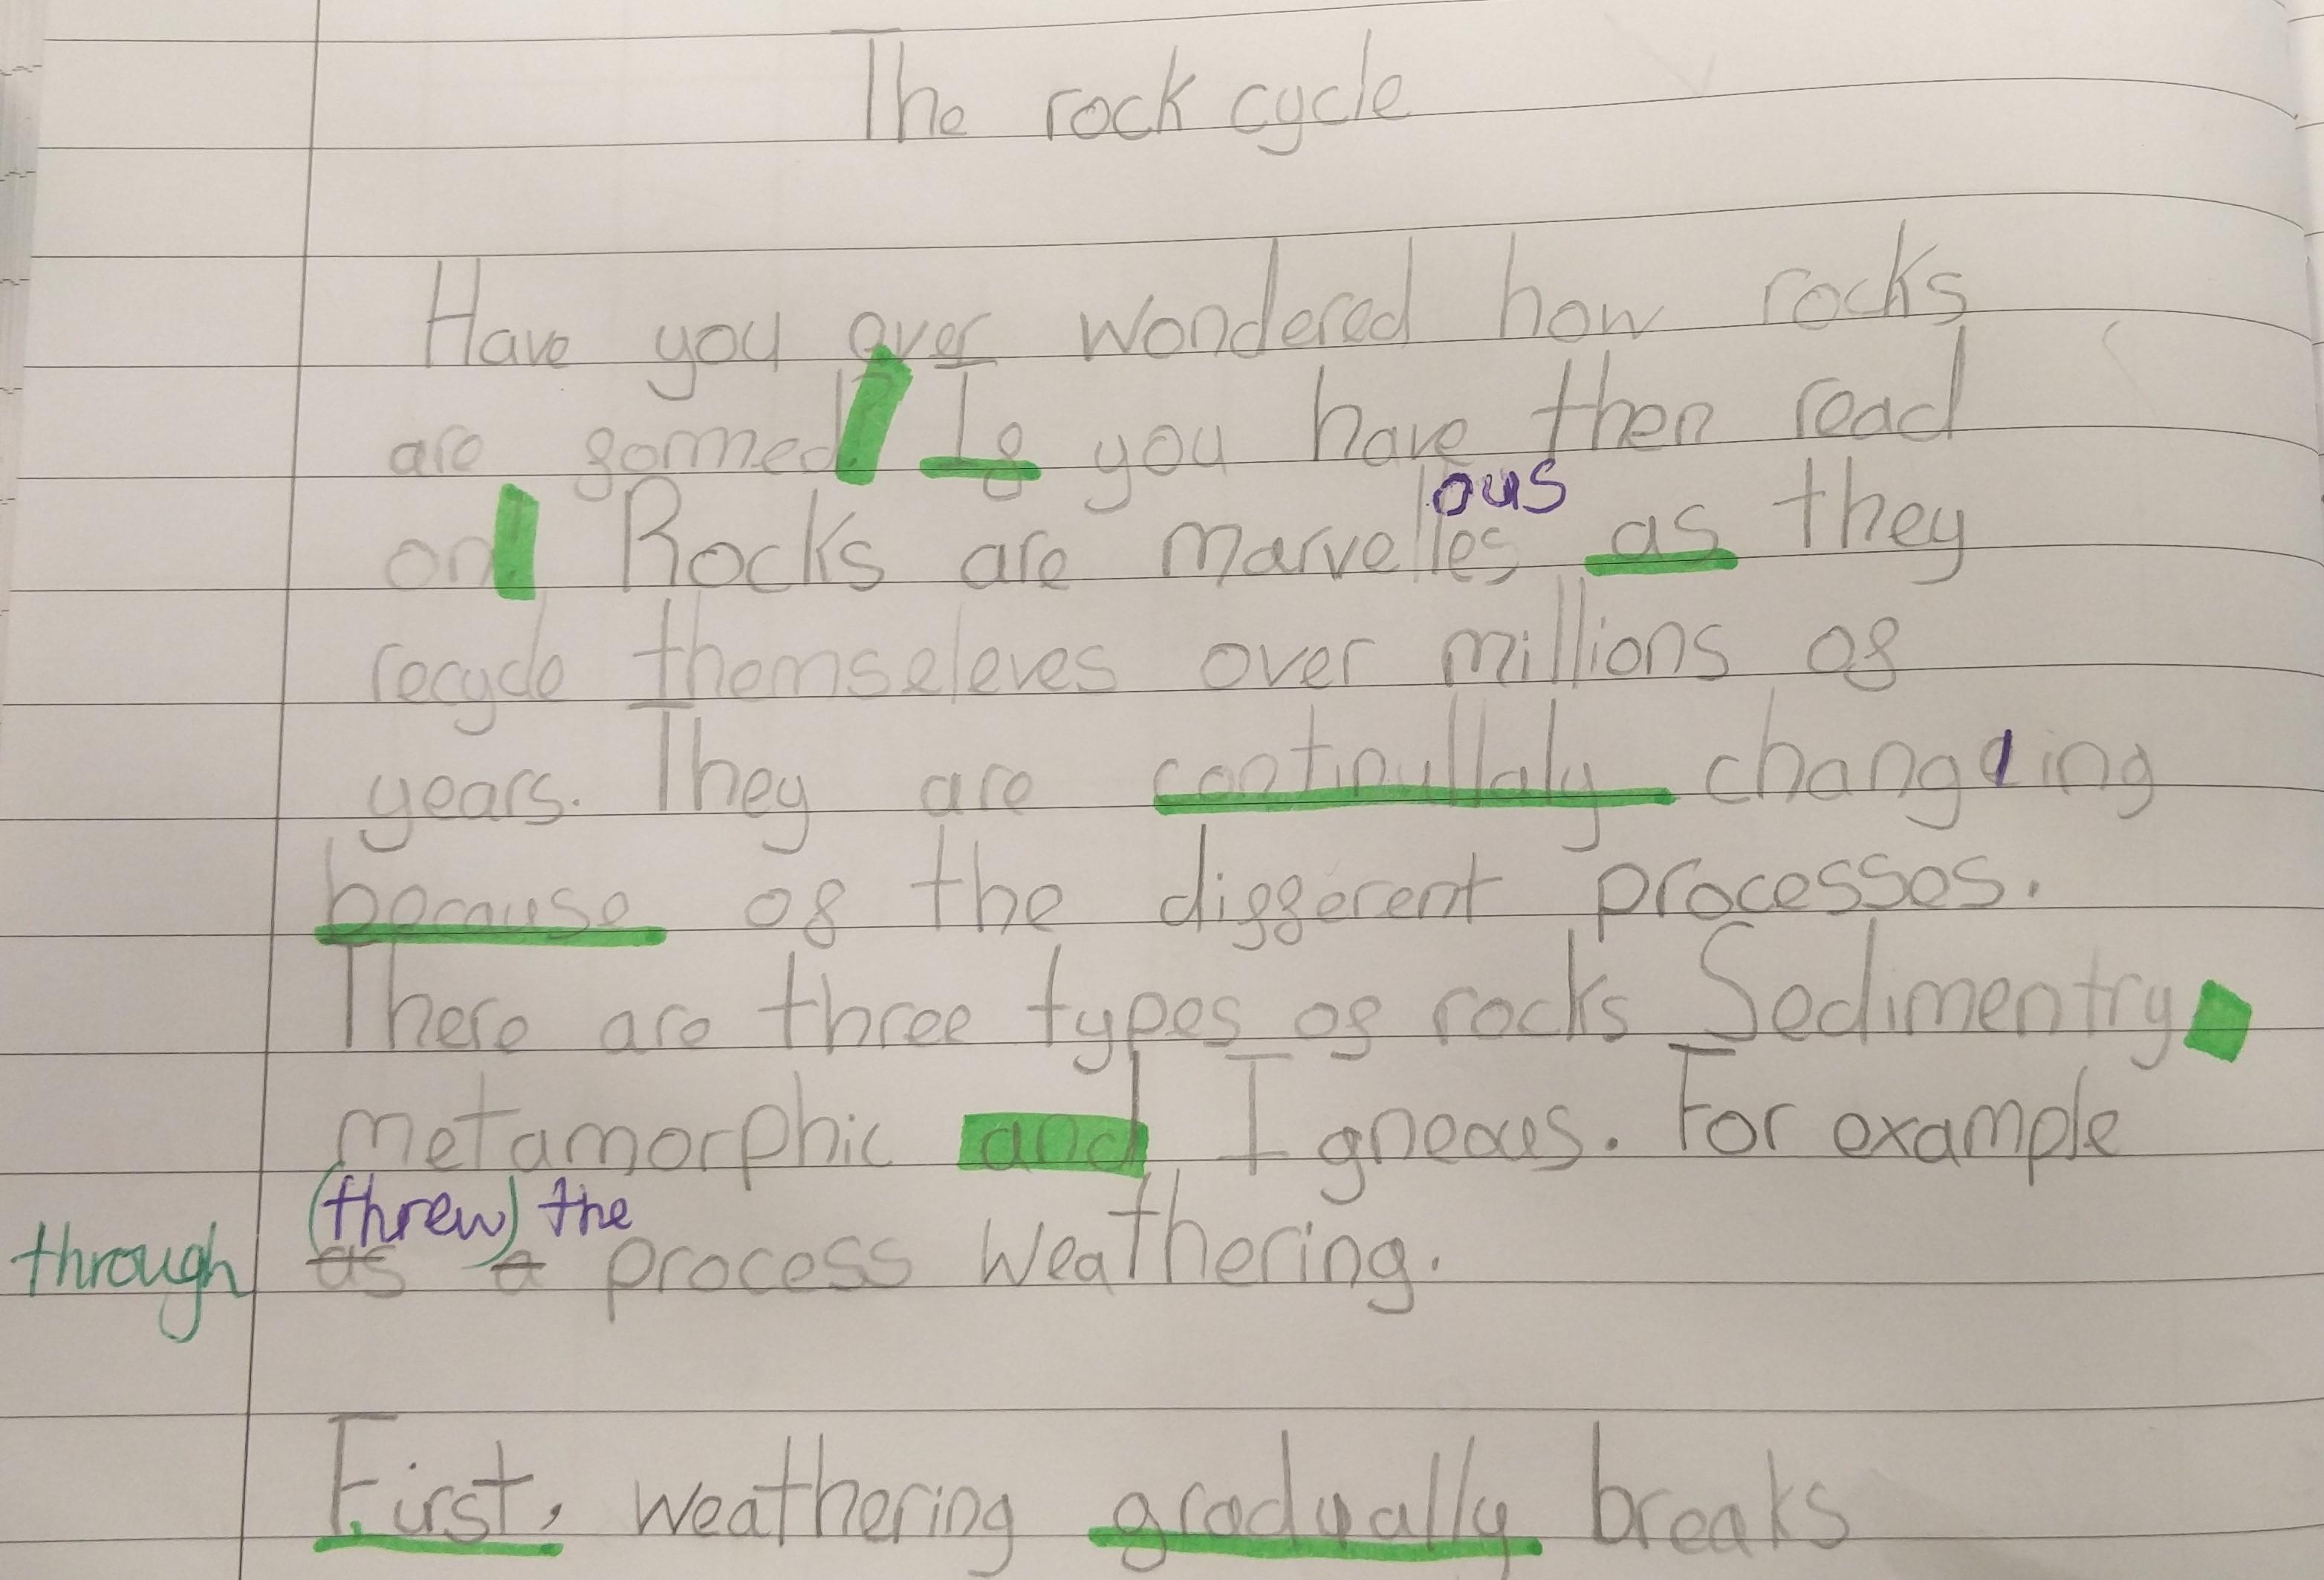 The rock cycle
Have you ever wondered how rocks
are formed? If you have then read
on! Rocks are marvelles as they
ous
recycle themseleves over millions of
years. They are continullaly changing
because of the different processes.
There are three types of rocks Sedimentry,
metamorphic and Igneous. For example
(threw) the
through as a process weathering.
First, weathering gradually breaks